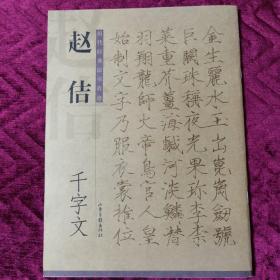 金生麗水玉出崑崗劒號
巨闕珠稱夜光果珎李柰
菜重芥薑海鹹河淡鱗潛
羽翔龍師火帝鳥官人皇
始制文字乃服衣裳推位
赵佶
千字文